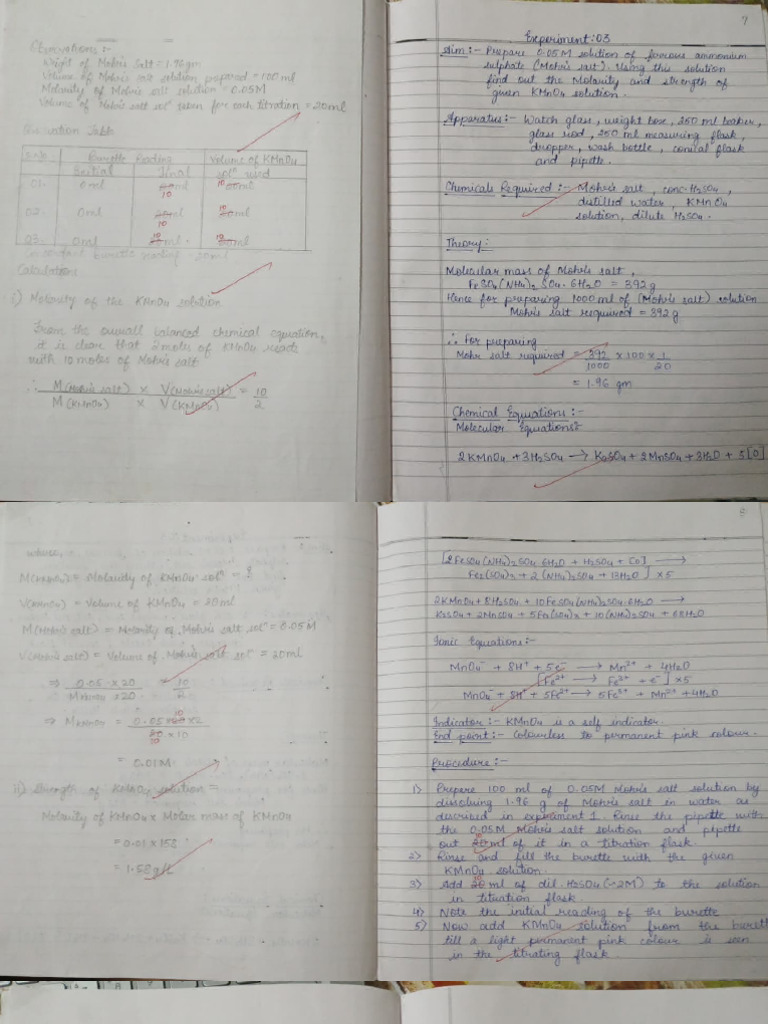 Observations :-
Weight of Mohr's Salt = 1.96 gm
Volume of Mohr's salt solution prepared = 100 ml
Molarity of Mohr's salt solution = 0.05M
Volume of Mohr's salt solⁿ taken for each titration = 20ml
Observation Table
S.No. Burette Reading Volume of KMnO4
Initial Final solⁿ used
01. 0ml 10 10
02. 0ml 10 10
03. 0ml 10 10
Concordant burette reading - 20ml
Calculations
i) Molarity of the KMnO4 solution
From the overall balanced chemical equation,
it is clear that 2 moles of KMnO4 reacts
with 10 moles of Mohr's salt
∴ M(Mohr's salt) x V(Mohr's salt) = 10
M(KMnO4) x V(KMnO4) 2
7
Experiment:03
Aim:- Prepare 0.05M solution of ferrous ammonium
sulphate (Mohr's salt). Using this solution
find out the Molarity and strength of
given KMnO4 solution.
Apparatus:- Watch glass, weight box, 250 ml beaker,
glass rod, 250 ml measuring flask,
dropper, wash bottle, conical flask
and pipette.
Chemicals Required:- Mohr's salt, conc. H2SO4,
distilled water, KMnO4
solution, dilute H2SO4.
Theory:
Molecular mass of Mohr's salt,
FeSO4(NH4)2 SO4.6H2O = 392g
Hence for preparing 1000 ml of (Mohr's salt) solution
Mohr's salt required = 392g
∴ For preparing
Mohr salt required = 392 x 100 x 1
1000 20
= 1.96 gm
Chemical Equations:-
Molecular Equations:-
2KMnO4 + 3H2SO4 → K2SO4 + 2MnSO4 + 3H2O + 5[O]
where,
M(KMnO4) = Molarity of KMnO4 solⁿ = ?
V(KMnO4) = Volume of KMnO4 = 20ml
M(Mohr's salt) = Molarity of Mohr's salt solⁿ = 0.05M
V(Mohr's salt) = Volume of Mohr's salt solⁿ = 20ml
⇒ 0.05 x 20 10
MKMnO4 x 20 2
⇒ MKMnO4 = 0.05 x 10 x 2
10 x 10
= 0.01M
ii) Strength of KMnO4 solution =
Molarity of KMnO4 x Molar mass of KMnO4
= 0.01 x 158
= 1.58 g/L
8
[2FeSO4(NH4)2SO4.6H2O + H2SO4 + [O] →
Fe2(SO4)3 + 2(NH4)2SO4 + 13H2O] x5
2KMnO4 + 8H2SO4 + 10FeSO4(NH4)2SO4.6H2O →
K2SO4 + 2MnSO4 + 5Fe2(SO4)3 + 10(NH4)2SO4 + 68H2O
Ionic Equations:-
MnO4⁻ + 8H⁺ + 5e⁻ → Mn²⁺ + 4H2O
[Fe²⁺ → Fe³⁺ + e⁻] x5
MnO4⁻ + 8H⁺ + 5Fe²⁺ → 5Fe³⁺ + Mn²⁺ + 4H2O
Indicator:- KMnO4 is a self indicator.
End point:- Colourless to permanent pink colour.
Procedure:-
1) Prepare 100 ml of 0.05M Mohr's salt solution by
dissolving 1.96 g of Mohr's salt in water as
described in experiment 1. Rinse the pipette with
the 0.05M Mohr's salt solution and pipette
out 10 ml of it in a titration flask.
2) Rinse and fill the burette with the given
KMnO4 solution.
3) Add 10 ml of dil. H2SO4 (~2M) to the solution
in titration flask.
4) Note the initial reading of the burette
5) Now add KMnO4 solution from the burett
till a light permanent pink colour is seen
in the titrating flask.